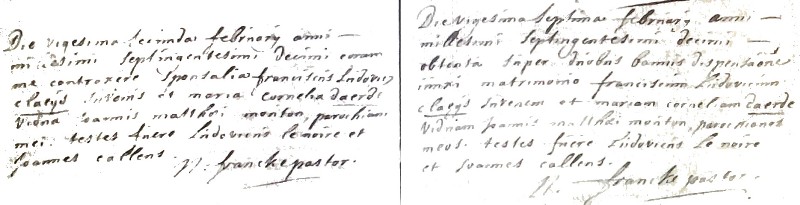 Die vigesima secunda februarij anni —
millesimi septingentesimi decimi coram
me contraxere sponsalia franciscus Ludovicus
claeijs Juvenis et maria Cornelia daerde
Vidua Joannis matthæi monton, parochiani
mei. testes fuere Ludovicus lenoire et
Joannes callens franckepastor.
Die vigesima septima februarij anni —
millesimi septingentesimi decimi —
obtenta super duobus bannis dispensatione
junxi matrimonio franciscum Ludovicum
claeijs Juvenem et mariam corneliam daerde
Viduam Joannis matthæi monton, parochianos
meos. testes fuere Ludovicus Le noire
et Joannes callens.
francke pastor.